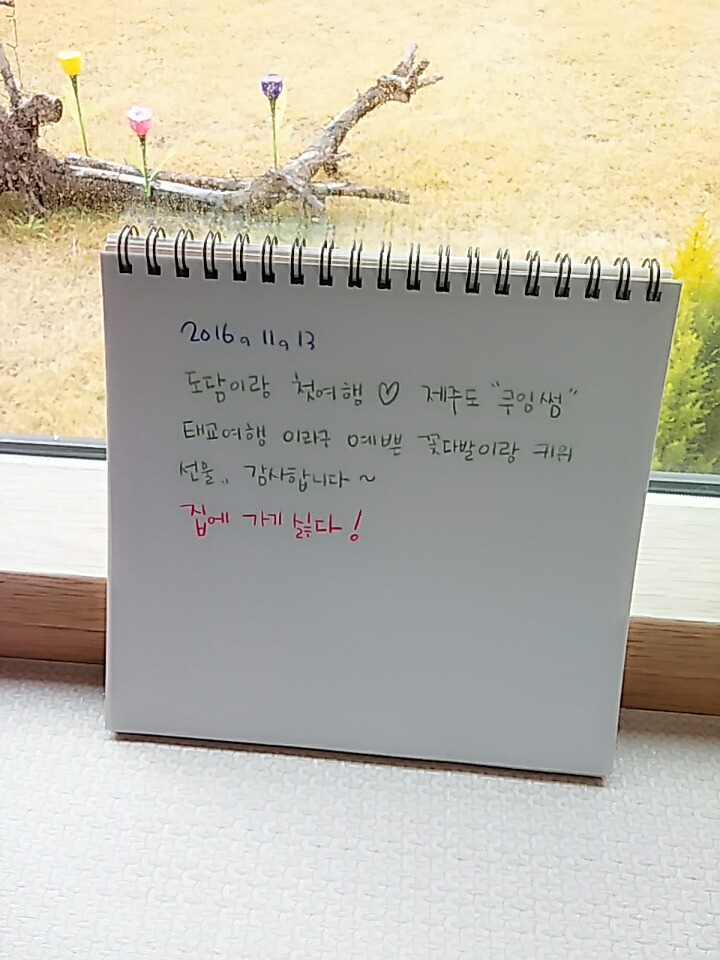 2016. 11. 13
도담이랑 첫여행 ♡ 제주도 "쿠잉썸"
태교여행 이라구 예쁜 꽃다발이랑 키위
선물.. 감사합니다 ~
집에 가기 싫다!